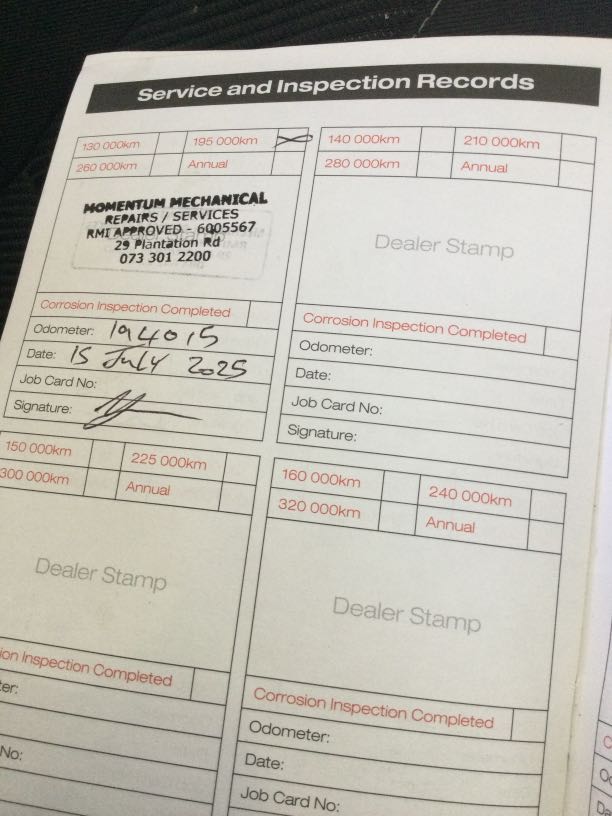 Service and Inspection Records
130 000km 195 000km
260 000km Annual
MOMENTUM MECHANICAL
REPAIRS / SERVICES
RMI APPROVED - 6005567
29 Plantation Rd
073 301 2200
Corrosion Inspection Completed
Odometer: 194015
Date: 15 July 2025
Job Card No:
Signature:
140 000km 210 000km
280 000km Annual
Dealer Stamp
Corrosion Inspection Completed
Odometer:
Date:
Job Card No:
Signature:
150 000km 225 000km
300 000km Annual
Dealer Stamp
ion Inspection Completed
ter:
No:
160 000km 240 000km
320 000km Annual
Dealer Stamp
Corrosion Inspection Completed
Odometer:
Date:
Job Card No:
C
Od
Da